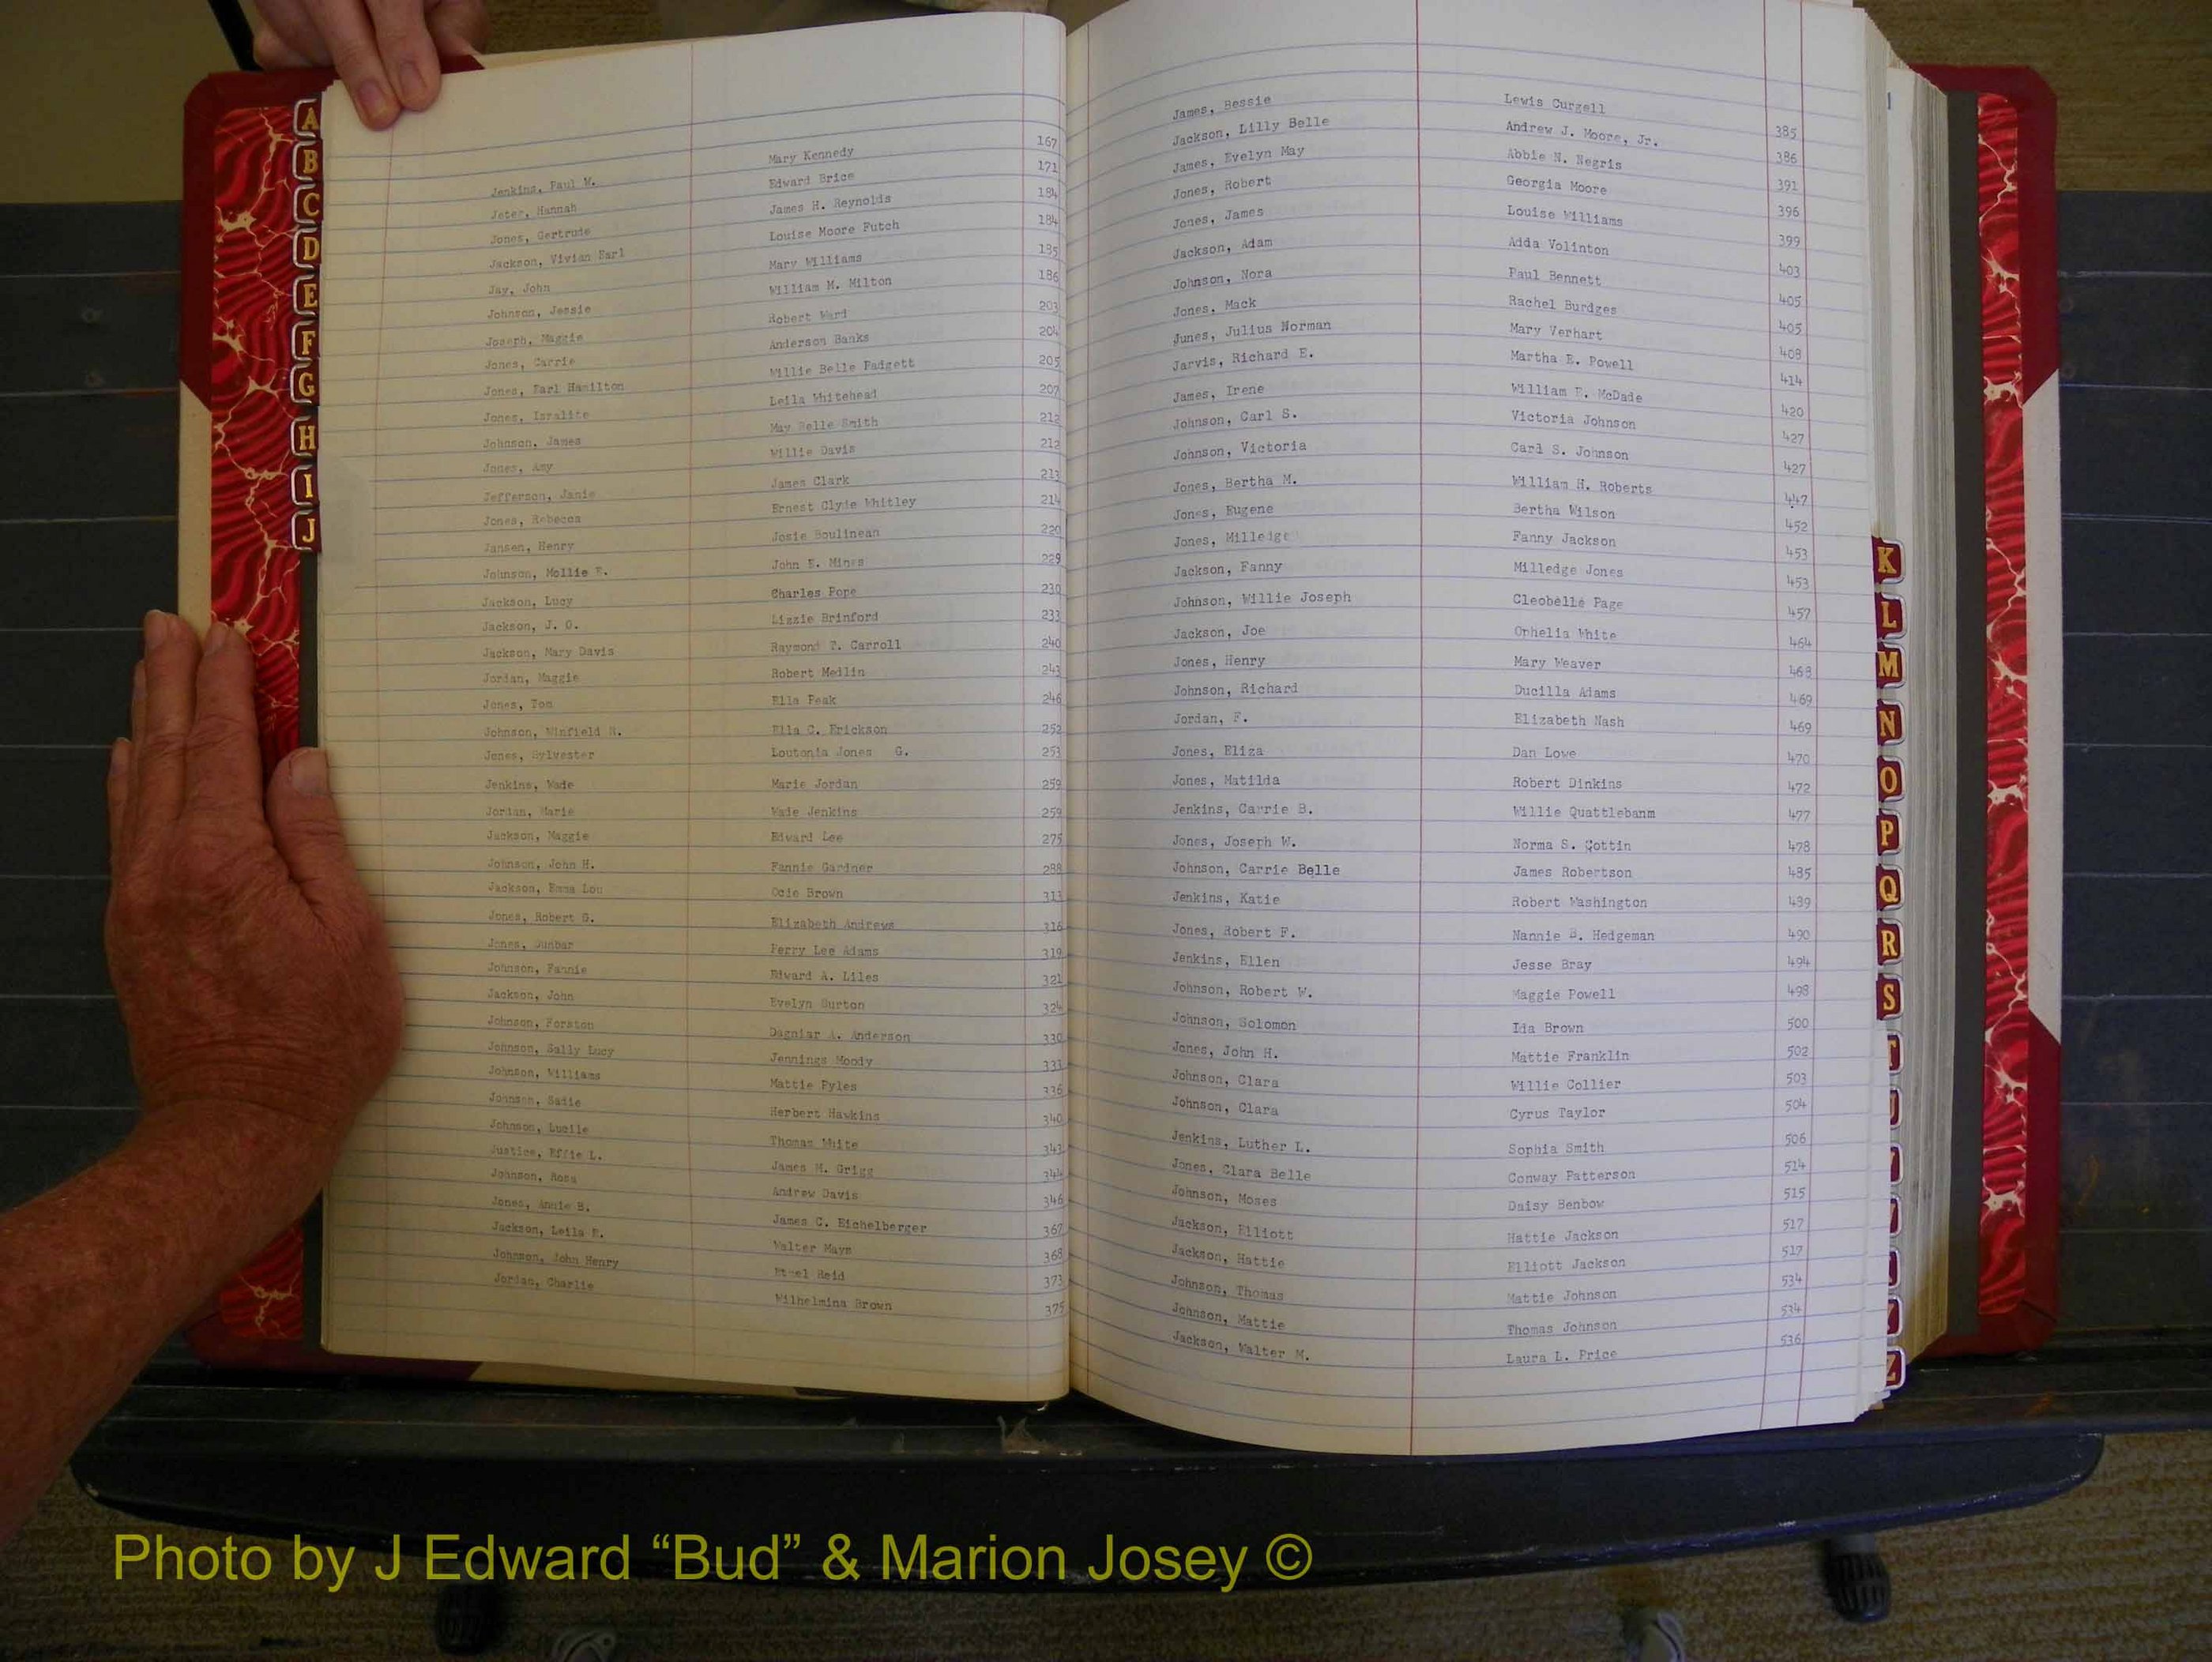 A
B
C
D
E
F
G
H
I
J
Jenkins, Paul W. Mary Kennedy 167
Jeter, Hannah Edward Brice 171
Jones, Gertrude James H. Reynolds 184
Jackson, Vivian Earl Louise Moore Futch 184
Jay, John Mary Williams 185
Johnson, Jessie William M. Milton 186
Joseph, Maggie Robert Ward 203
Jones, Carrie Anderson Banks 204
Jones, Earl Hamilton Willie Belle Padgett 205
Jones, Izralite Leila Whitehead 207
Johnson, James May Belle Smith 212
Jones, Amy Willie Davis 212
Jefferson, Janie James Clark 213
Jones, Rebecca Ernest Clyde Whitley 214
Jansen, Henry Josie Boulinean 220
Johnson, Mollie E. John E. Mines 229
Jackson, Lucy Charles Pope 230
Jackson, J. O. Lizzie Brinford 233
Jackson, Mary Davis Raymond T. Carroll 240
Jordan, Maggie Robert Medlin 243
Jones, Tom Ella Peak 246
Johnson, Winfield R. Ella C. Erickson 252
Jones, Sylvester Loutonia Jones G. 253
Jenkins, Wade Marie Jordan 259
Jordan, Marie Wade Jenkins 259
Jackson, Maggie Edward Lee 275
Johnson, John H. Fannie Gardner 288
Jackson, Emma Lou Ocie Brown 313
Jones, Robert G. Elizabeth Andrews 316
Jones, Dunbar Perry Lee Adams 319
Johnson, Fannie Edward A. Liles 321
Jackson, John Evelyn Burton 324
Johnson, Forston Dagniar A. Anderson 330
Johnson, Sally Lucy Jennings Moody 333
Johnson, Williams Mattie Pyles 336
Johnson, Sadie Herbert Hawkins 340
Johnson, Lucile Thomas White 343
Justice, Effie L. James M. Grigg 344
Johnson, Rosa Andrew Davis 346
Jones, Annie B. James C. Eichelberger 367
Jackson, Leila E. Walter Mays 368
Johnson, John Henry Ethel Reid 373
Jordan, Charlie Wilhelmina Brown 375
James, Bessie Lewis Curgell 385
Jackson, Lilly Belle Andrew J. Moore, Jr. 386
James, Evelyn May Abbie N. Negris 391
Jones, Robert Georgia Moore 396
Jones, James Louise Williams 399
Jackson, Adam Adda Volinton 403
Johnson, Nora Paul Bennett 405
Jones, Mack Rachel Burdges 405
Junes, Julius Norman Mary Verhart 408
Jarvis, Richard E. Martha E. Powell 414
James, Irene William F. McDade 420
Johnson, Carl S. Victoria Johnson 427
Johnson, Victoria Carl S. Johnson 427
Jones, Bertha M. William H. Roberts 447
Jones, Eugene Bertha Wilson 452
Jones, Milledge Fanny Jackson 453
Jackson, Fanny Milledge Jones 453
Johnson, Willie Joseph Cleobelle Page 457
Jackson, Joe Ophelia White 464
Jones, Henry Mary Weaver 468
Johnson, Richard Ducilla Adams 469
Jordan, F. Elizabeth Nash 469
Jones, Eliza Dan Lowe 470
Jones, Matilda Robert Dinkins 472
Jenkins, Carrie B. Willie Quattlebanm 477
Jones, Joseph W. Norma S. Cottin 478
Johnson, Carrie Belle James Robertson 485
Jenkins, Katie Robert Washington 489
Jones, Robert F. Nannie B. Hedgeman 490
Jenkins, Ellen Jesse Bray 494
Johnson, Robert W. Maggie Powell 498
Johnson, Solomon Ida Brown 500
Jones, John H. Mattie Franklin 502
Johnson, Clara Willie Collier 503
Johnson, Clara Cyrus Taylor 504
Jenkins, Luther L. Sophia Smith 506
Jones, Clara Belle Conway Patterson 514
Johnson, Moses Daisy Benbow 515
Jackson, Elliott Hattie Jackson 517
Jackson, Hattie Elliott Jackson 517
Johnson, Thomas Mattie Johnson 534
Johnson, Mattie Thomas Johnson 534
Jackson, Walter M. Laura L. Price 536
K
L
M
N
O
P
Q
R
S
T
U
Z
Photo by J Edward “Bud” & Marion Josey ©